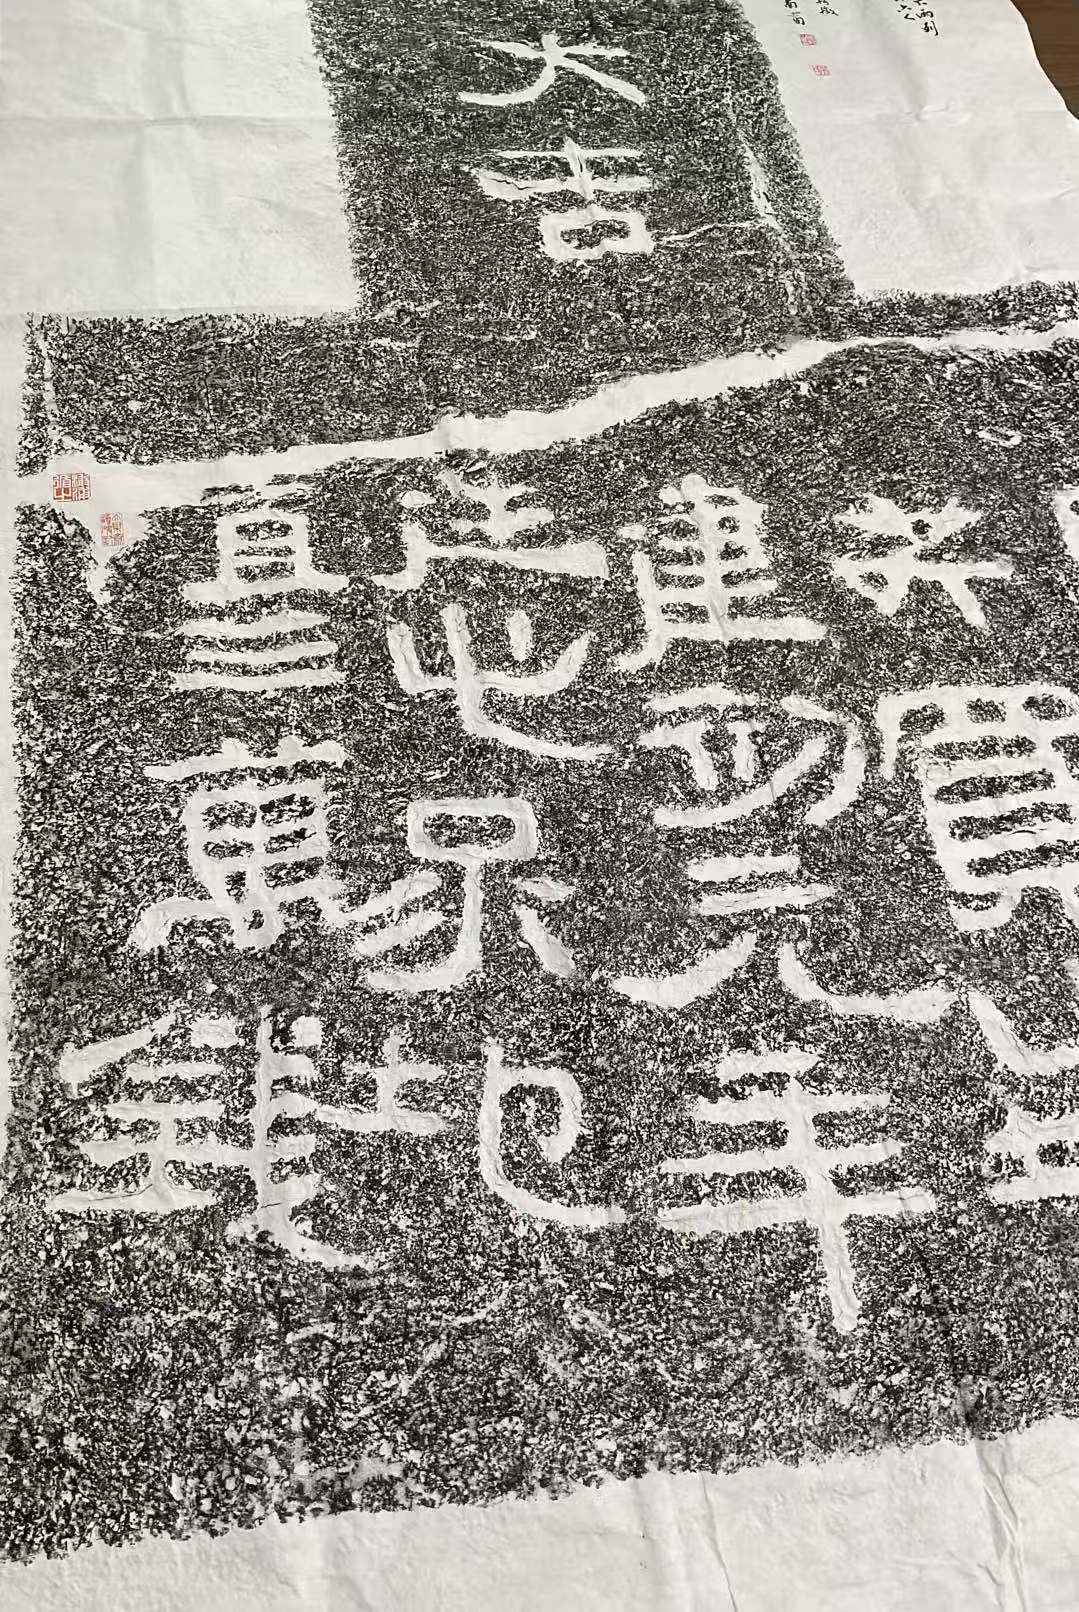 大吉
共買
建初元年
造此冢地
直三萬錢